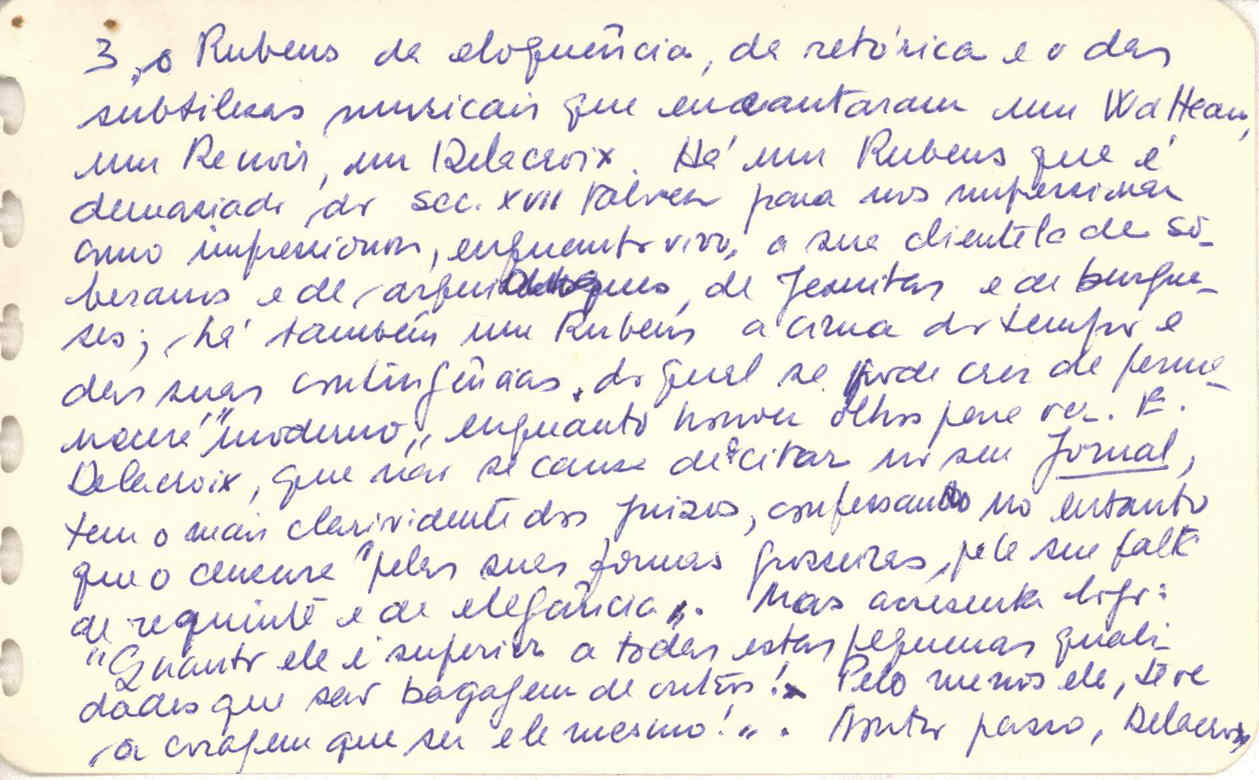 3, o Rubens da eloquência, da retórica e o das
subtilezas musicais que encantaram um Watteau,
um Renoir, um Delacroix. Há um Rubens que é
demasiado do sec. XVII talvez para nos impressionar
como impressionou, enquanto vivo, a sua clientela de so-
beranos e de arquiduques, de Jesuitas e de burgue-
ses; há também um Rubens acima do tempo e
das suas contingências, do qual se pode crer de perma-
necerá "moderno", enquanto houver olhos para ver. E.
Delacroix, que não se cansa de citar no seu Jornal,
tem o mais clarividente dos juizos, confessando no entanto
que o censura "pelas suas formas grosseiras, pela sua falta
de requinte e de elegância". Mas acrescenta logo:
"Quanto ele é superior a todas estas pequenas quali-
dades que são bagagem de outros! Pelo menos ele, teve
a coragem que ser ele mesmo!". Noutro passo, Delacroix,